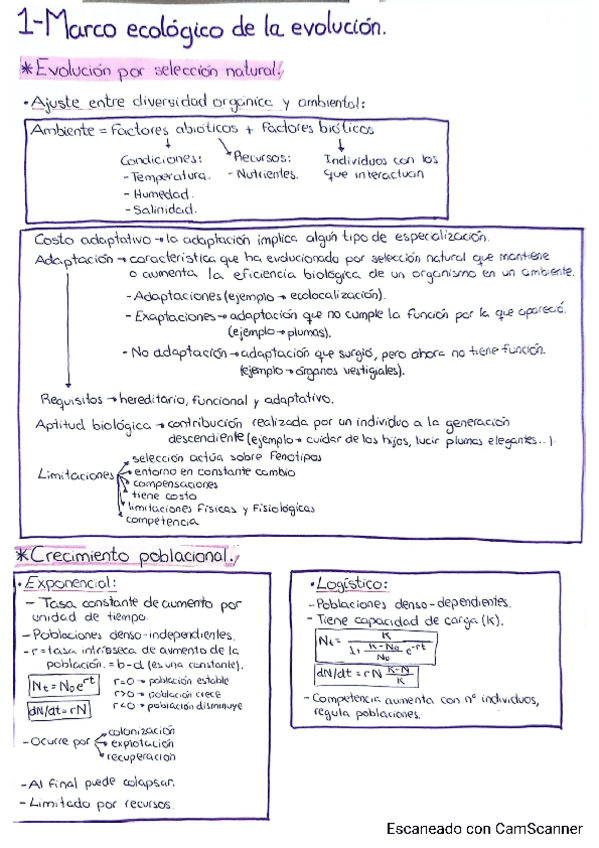 1-Marco ecológico de la evolución.
*Evolución por selección natural.
·Ajuste entre diversidad orgánica y ambiental:
Ambiente = Factores abióticos + Factores bióticos
Condiciones:
-Temperatura.
-Humedad.
-Salinidad.
Recursos:
-Nutrientes.
Individuos con los
que interactuan
Costo adaptativo → la adaptación implica algún tipo de especialización.
Adaptación → característica que ha evolucionado por selección natural que mantiene
o aumenta la eficiencia biológica de un organismo en un ambiente.
-Adaptaciones (ejemplo → ecolocalización).
-Exaptaciones → adaptación que no cumple la función por la que apareció.
(ejemplo → plumas).
-No adaptación → adaptación que surgió, pero ahora no tiene función.
(ejemplo → órganos vestigiales).
Requisitos → hereditario, funcional y adaptativo.
Aptitud biológica → contribución realizada por un individuo a la generación
descendiente (ejemplo → cuidar de los hijos, lucir plumas elegantes...).
Limitaciones
selección actúa sobre Fenotipos
entorno en constante cambio
compensaciones
tiene costo
limitaciones Físicas y Fisiológicas
competencia
*Crecimiento poblacional.
·Exponencial:
-Tasa constante de aumento por
unidad de tiempo.
-Poblaciones denso-independientes.
-r = tasa intrínseca de aumento de la
población. = b-d (es una constante).
Nt = N₀e^rt
dN/dt = rN
r=0 → población estable
r>0 → población crece
r<0 → población disminuye
-Ocurre por
colonización
explotación
recuperación
-Al final puede colapsar.
-Limitado por recursos.
·Logístico:
-Poblaciones denso-dependientes.
-Tiene capacidad de carga (K).
Nt = K / (1 + (K-N₀)/N₀ e^-rt)
dN/dt = rN (K-N)/K
-Competencia aumenta con nº individuos,
regula poblaciones.
Escaneado con CamScanner